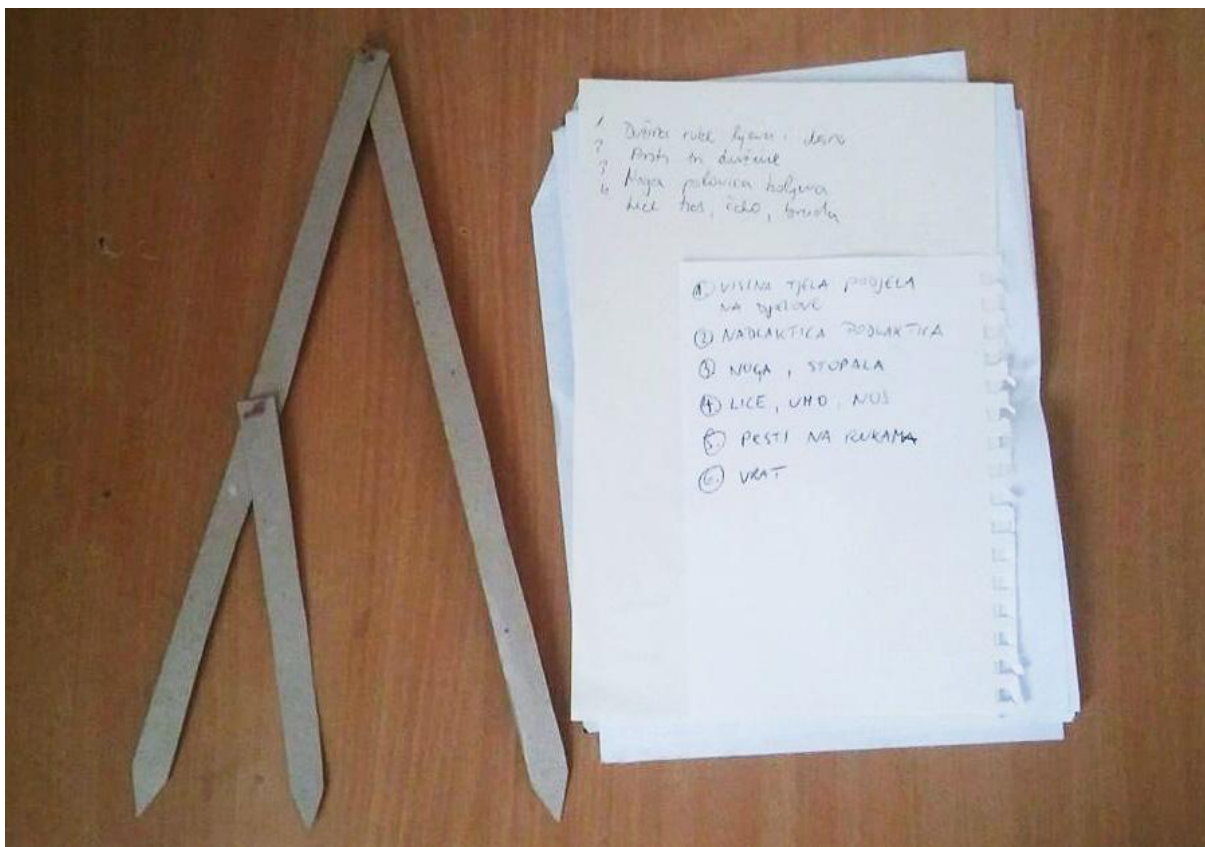 1 Dužina ruke lijeva i desna
2 Prsti tri dužine
3 Noga polovica koljena
4 Lice nos, čelo, brada
① VISINA TJELA PODJELA
NA DJELOVE
② NADLAKTICA PODLAKTICA
③ NOGA, STOPALA
④ LICE, UHO, NOS
5. PRSTI NA RUKAMA
6. VRAT